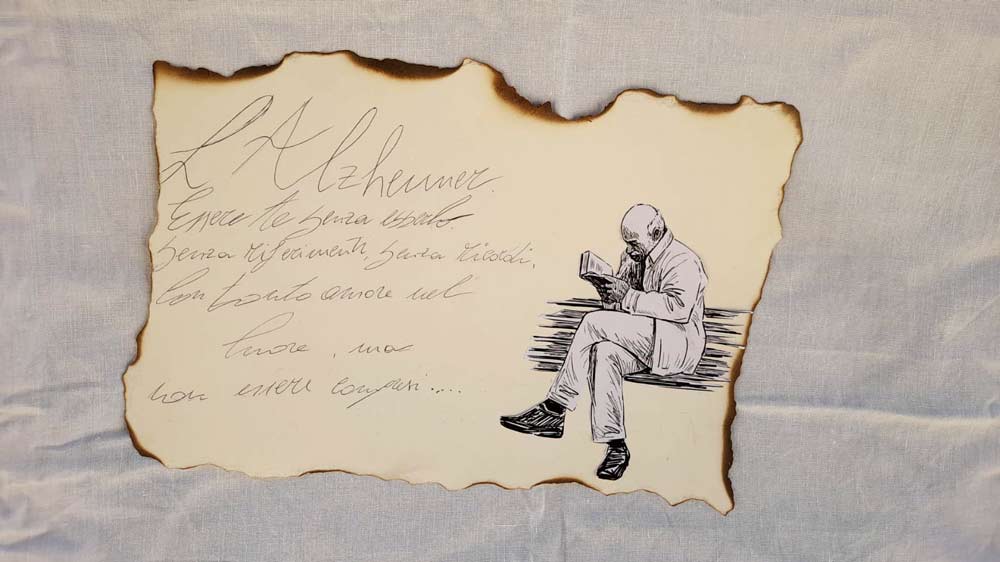 L'Alzheimer.
Essere te senza esserlo
senza riferimenti, senza ricordi,
con tanto amore nel
cuore, ma
non essere compresi....